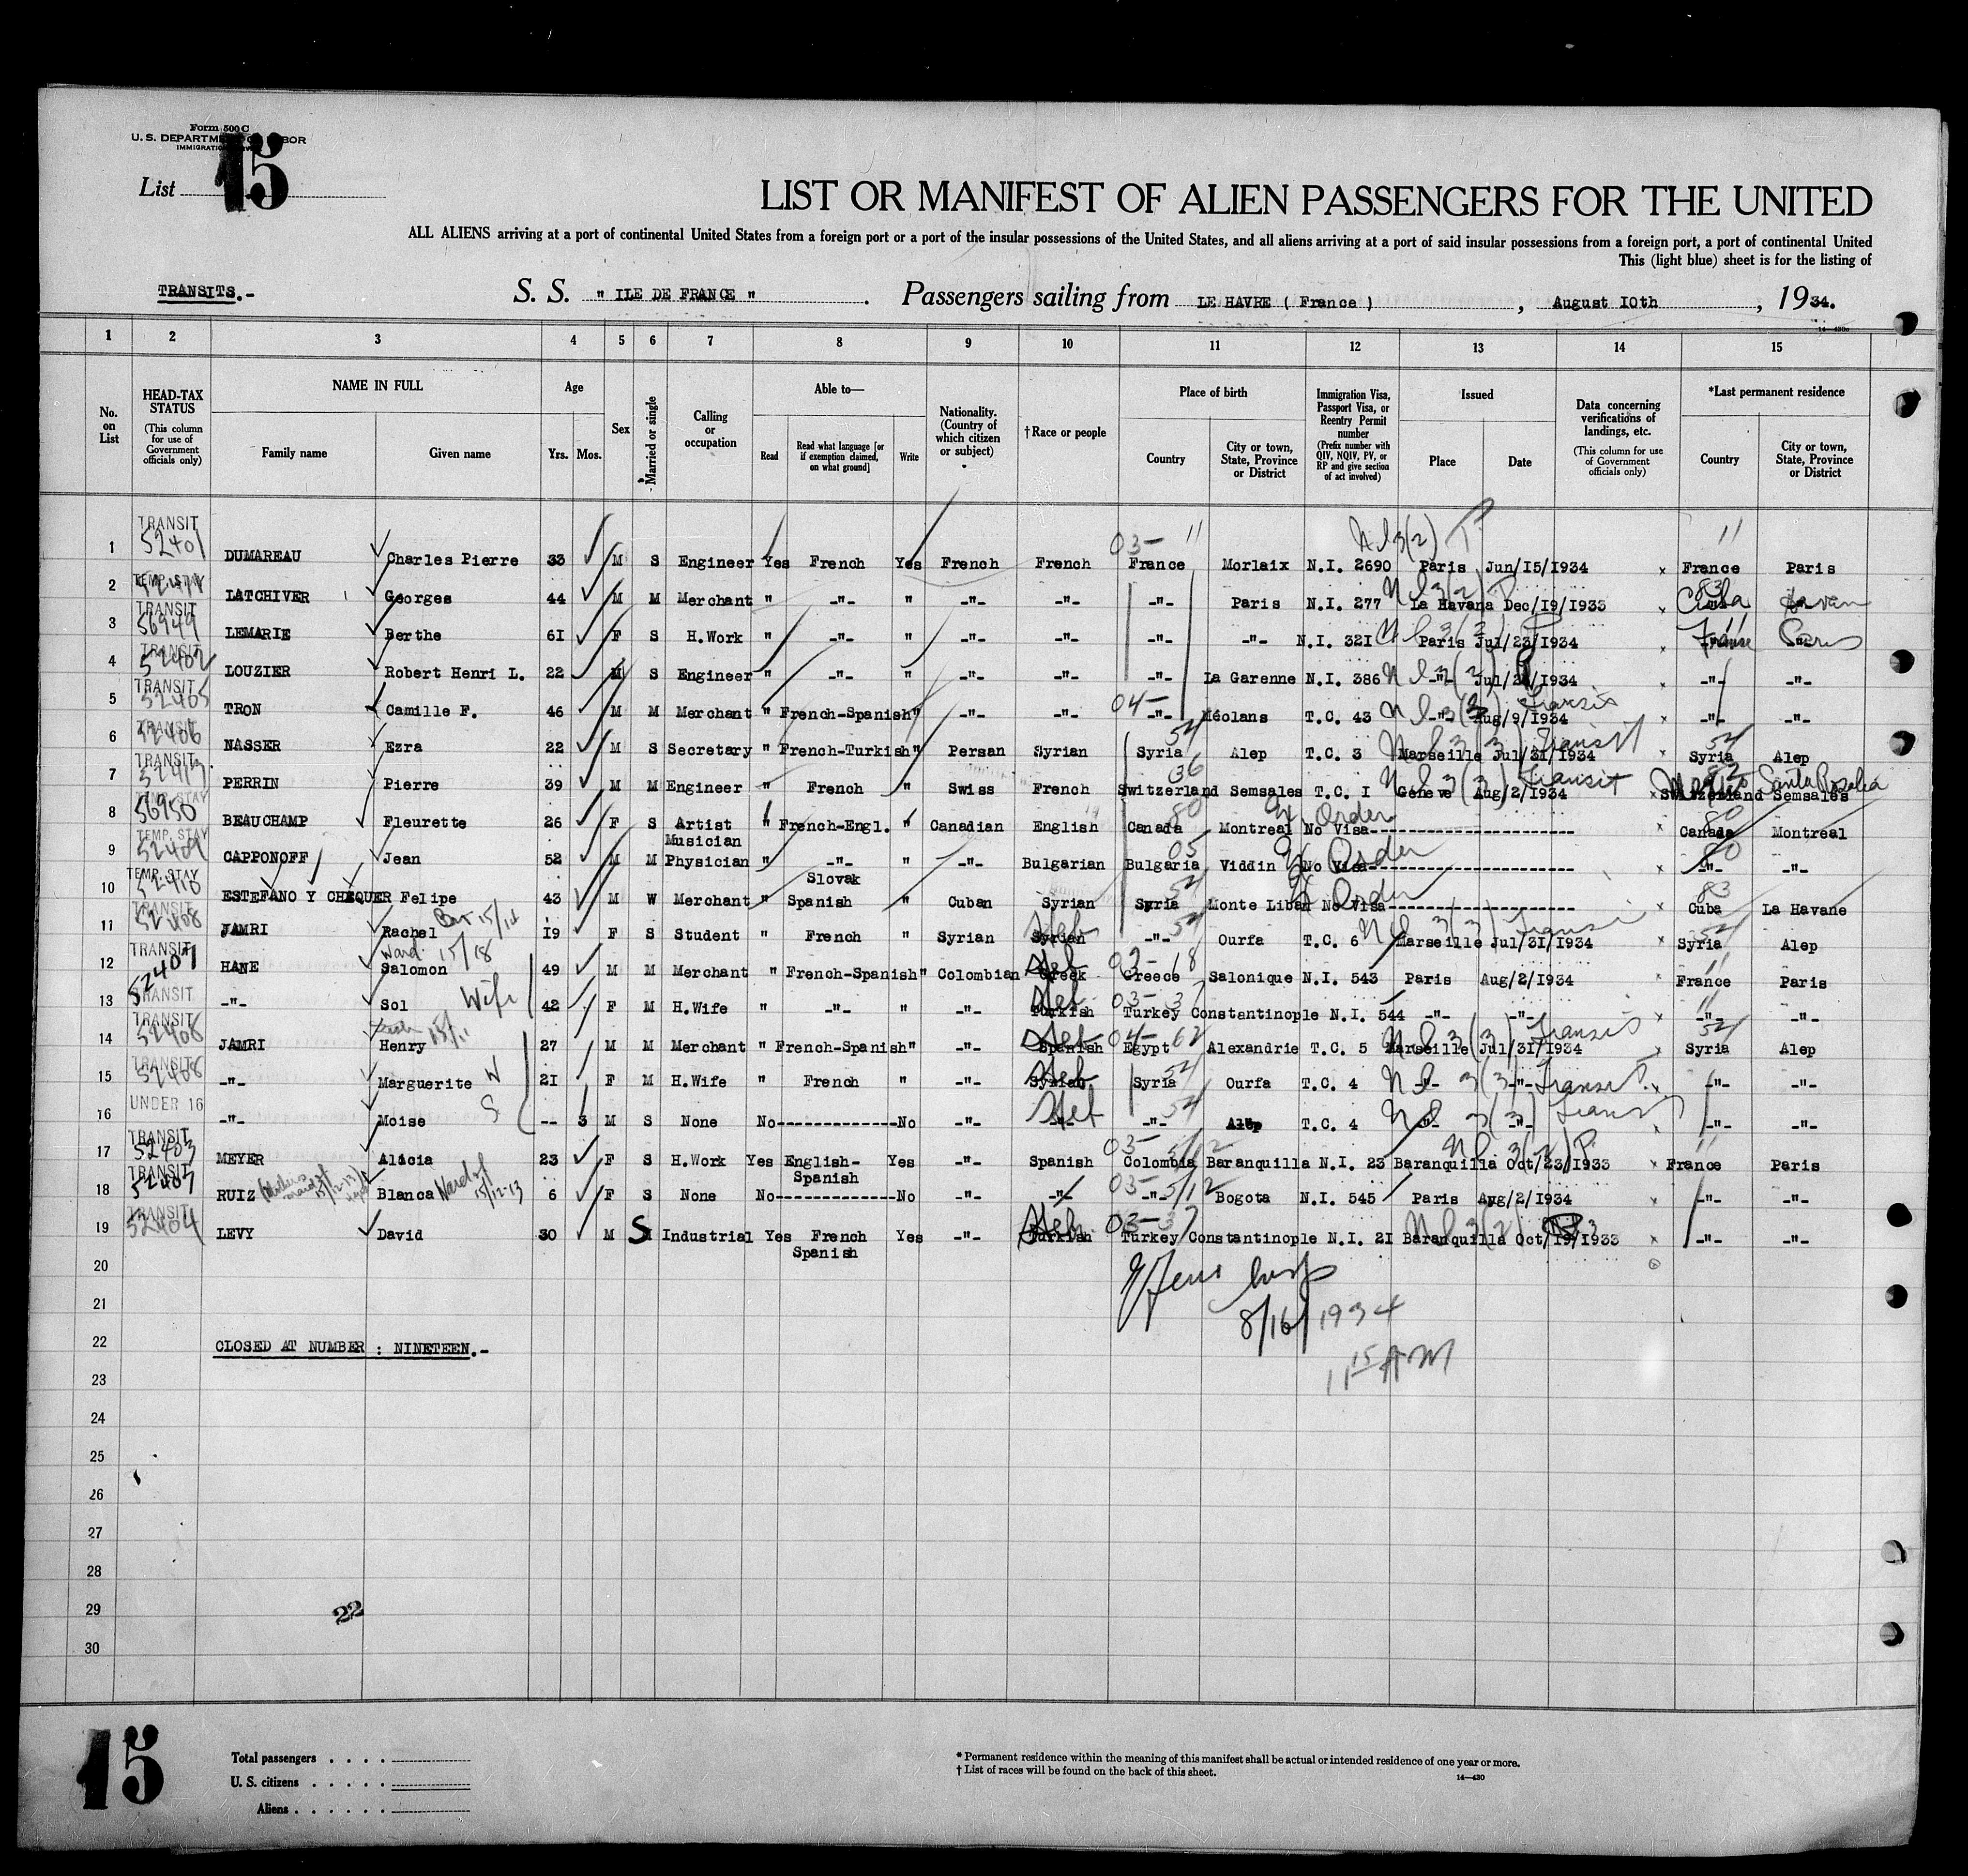 Form 500 C
U. S. DEPARTMENT OF LABOR
List 15
LIST OR MANIFEST OF ALIEN PASSENGERS FOR THE UNITED
ALL ALIENS arriving at a port of continental United States from a foreign port or a port of the insular possessions of the United States, and all aliens arriving at a port of said insular possessions from a foreign port, a port of continental United
This (light blue) sheet is for the listing of
TRANSITS.- S. S. " ILE DE FRANCE " . Passengers sailing from LE HAVRE ( France ) , August 10th , 1934.
1 2 3 4 5 6 7 8 9 10 11 12 13 14 15
No. on List HEAD-TAX STATUS (This column for use of Government officials only) NAME IN FULL Family name Given name Age Yrs. Mos. Sex Married or single Calling or occupation Able to— Read Read what language [or if exemption claimed, on what ground] Write Nationality. (Country of which citizen or subject) †Race or people Place of birth Country City or town, State, Province or District Immigration Visa, Passport Visa, or Reentry Permit number (Prefix number with QIV, NQIV, PV, or RP and give section of act involved) Issued Place Date Data concerning verifications of landings, etc. (This column for use of Government officials only) *Last permanent residence Country City or town, State, Province or District
1 TRANSIT 52401 DUMAREAU Charles Pierre 33 M S Engineer Yes French Yes French French 03- 11 France Morlaix N.I. 2690 Paris Jun/15/1934 x 11 France Paris
2 TEMP. STAY LATCHIVER Georges 44 M M Merchant " -"- " -"- -"- -"- Paris N.I. 277 La Havana Dec/19/1933 x 83 Cuba Havan
3 TRANSIT 56949 LEMARIE Berthe 61 F S H.Work " -"- " -"- -"- -"- -"- N.I. 321 Paris Jul/23/1934 x France Paris
4 TRANSIT 52402 LOUZIER Robert Henri L. 22 M S Engineer " -"- " -"- -"- -"- La Garenne N.I. 386 -"- x -"- -"-
5 TRANSIT 52405 TRON Camille F. 46 M M Merchant " French-Spanish " -"- -"- 04- -"- Méolans T.C. 43 -"- Aug/9/1934 Transit x -"- -"-
6 TRANSIT 52406 NASSER Ezra 22 M S Secretary " French-Turkish " Persan Syrian 54 Syria Alep T.C. 3 Marseille Jul/31/1934 Transit x 54 Syria Alep
7 TRANSIT PERRIN Pierre 39 M M Engineer " French " Swiss French 36 Switzerland Semsales T.C. I Geneve Aug/2/1934 Transit x Switzerland Semsales Santa Rosalia
8 TEMP. STAY 56950 BEAUCHAMP Fleurette 26 F S Artist Musician " French-Engl. " Canadian English 80 Canada Montreal No Visa Ex Order x 80 Canada Montreal
9 TEMP. STAY 52409 CAPPONOFF Jean 52 M M Physician " -"- Slovak " -"- Bulgarian 05 Bulgaria Viddin No Visa Ex Order x 80 -"- -"-
10 TEMP. STAY 52410 ESTEFANO Y CHEQUER Felipe 43 M W Merchant " Spanish " Cuban Syrian 54 Syria Monte Liban No Visa Ex Order x 83 Cuba La Havane
11 TRANSIT 52408 JAMRI Rachel 15/14 19 F S Student " French " Syrian Heb Syrian 54 -"- Ourfa T.C. 6 Marseille Jul/31/1934 x 54 Syria Alep
12 TRANSIT 52407 HANE Salomon Ward 15/18 49 M M Merchant " French-Spanish " Colombian Heb Greek 18 Greece Salonique N.I. 543 Paris Aug/2/1934 11 France Paris
13 TRANSIT -"- Sol Wife 42 F M H.Wife " -"- " -"- Heb Turkish 03-37 Turkey Constantinople N.I. 544 -"- -"- x 11 -"- -"-
14 TRANSIT 52408 JAMRI Henry 15/11 27 M M Merchant " French-Spanish " -"- Heb Spanish 04-62 Egypt Alexandrie T.C. 5 Marseille Jul/31/1934 Transit x 54 Syria Alep
15 TRANSIT 52408 -"- Marguerite W 21 F M H.Wife " French " -"- Heb Syrian 54 Syria Ourfa T.C. 4 -"- -"- Transit x -"- -"-
16 UNDER 16 -"- Moise S -- 3 M S None No No -"- Heb 54 -"- Alep T.C. 4 -"- -"- Transit x -"- -"-
17 TRANSIT 52403 MEYER Alicia 23 F S H.Work Yes English-Spanish Yes -"- Spanish 03-5/12 Colombia Baranquilla N.I. 23 Baranquilla Oct/23/1933 x 11 France Paris
18 TRANSIT 52407 RUIZ Blanca Ward of 15/12-13 6 F S None No No -"- -"- 03-5/12 -"- Bogota N.I. 545 Paris Aug/2/1934 x -"- -"-
19 TRANSIT 52404 LEVY David 30 M S Industrial Yes French Spanish Yes -"- Heb Turkish 03-37 Turkey Constantinople N.I. 21 Baranquilla Oct/19/1933 x -"- -"-
20
21
8/16/1934
22 CLOSED AT NUMBER : NINETEEN.-
11 15 AM
23
24
25
26
27
28
29 22
30
15
Total passengers . . . .
U. S. citizens . . . . .
Aliens . . . . . .
* Permanent residence within the meaning of this manifest shall be actual or intended residence of one year or more.
† List of races will be found on the back of this sheet.
14—430